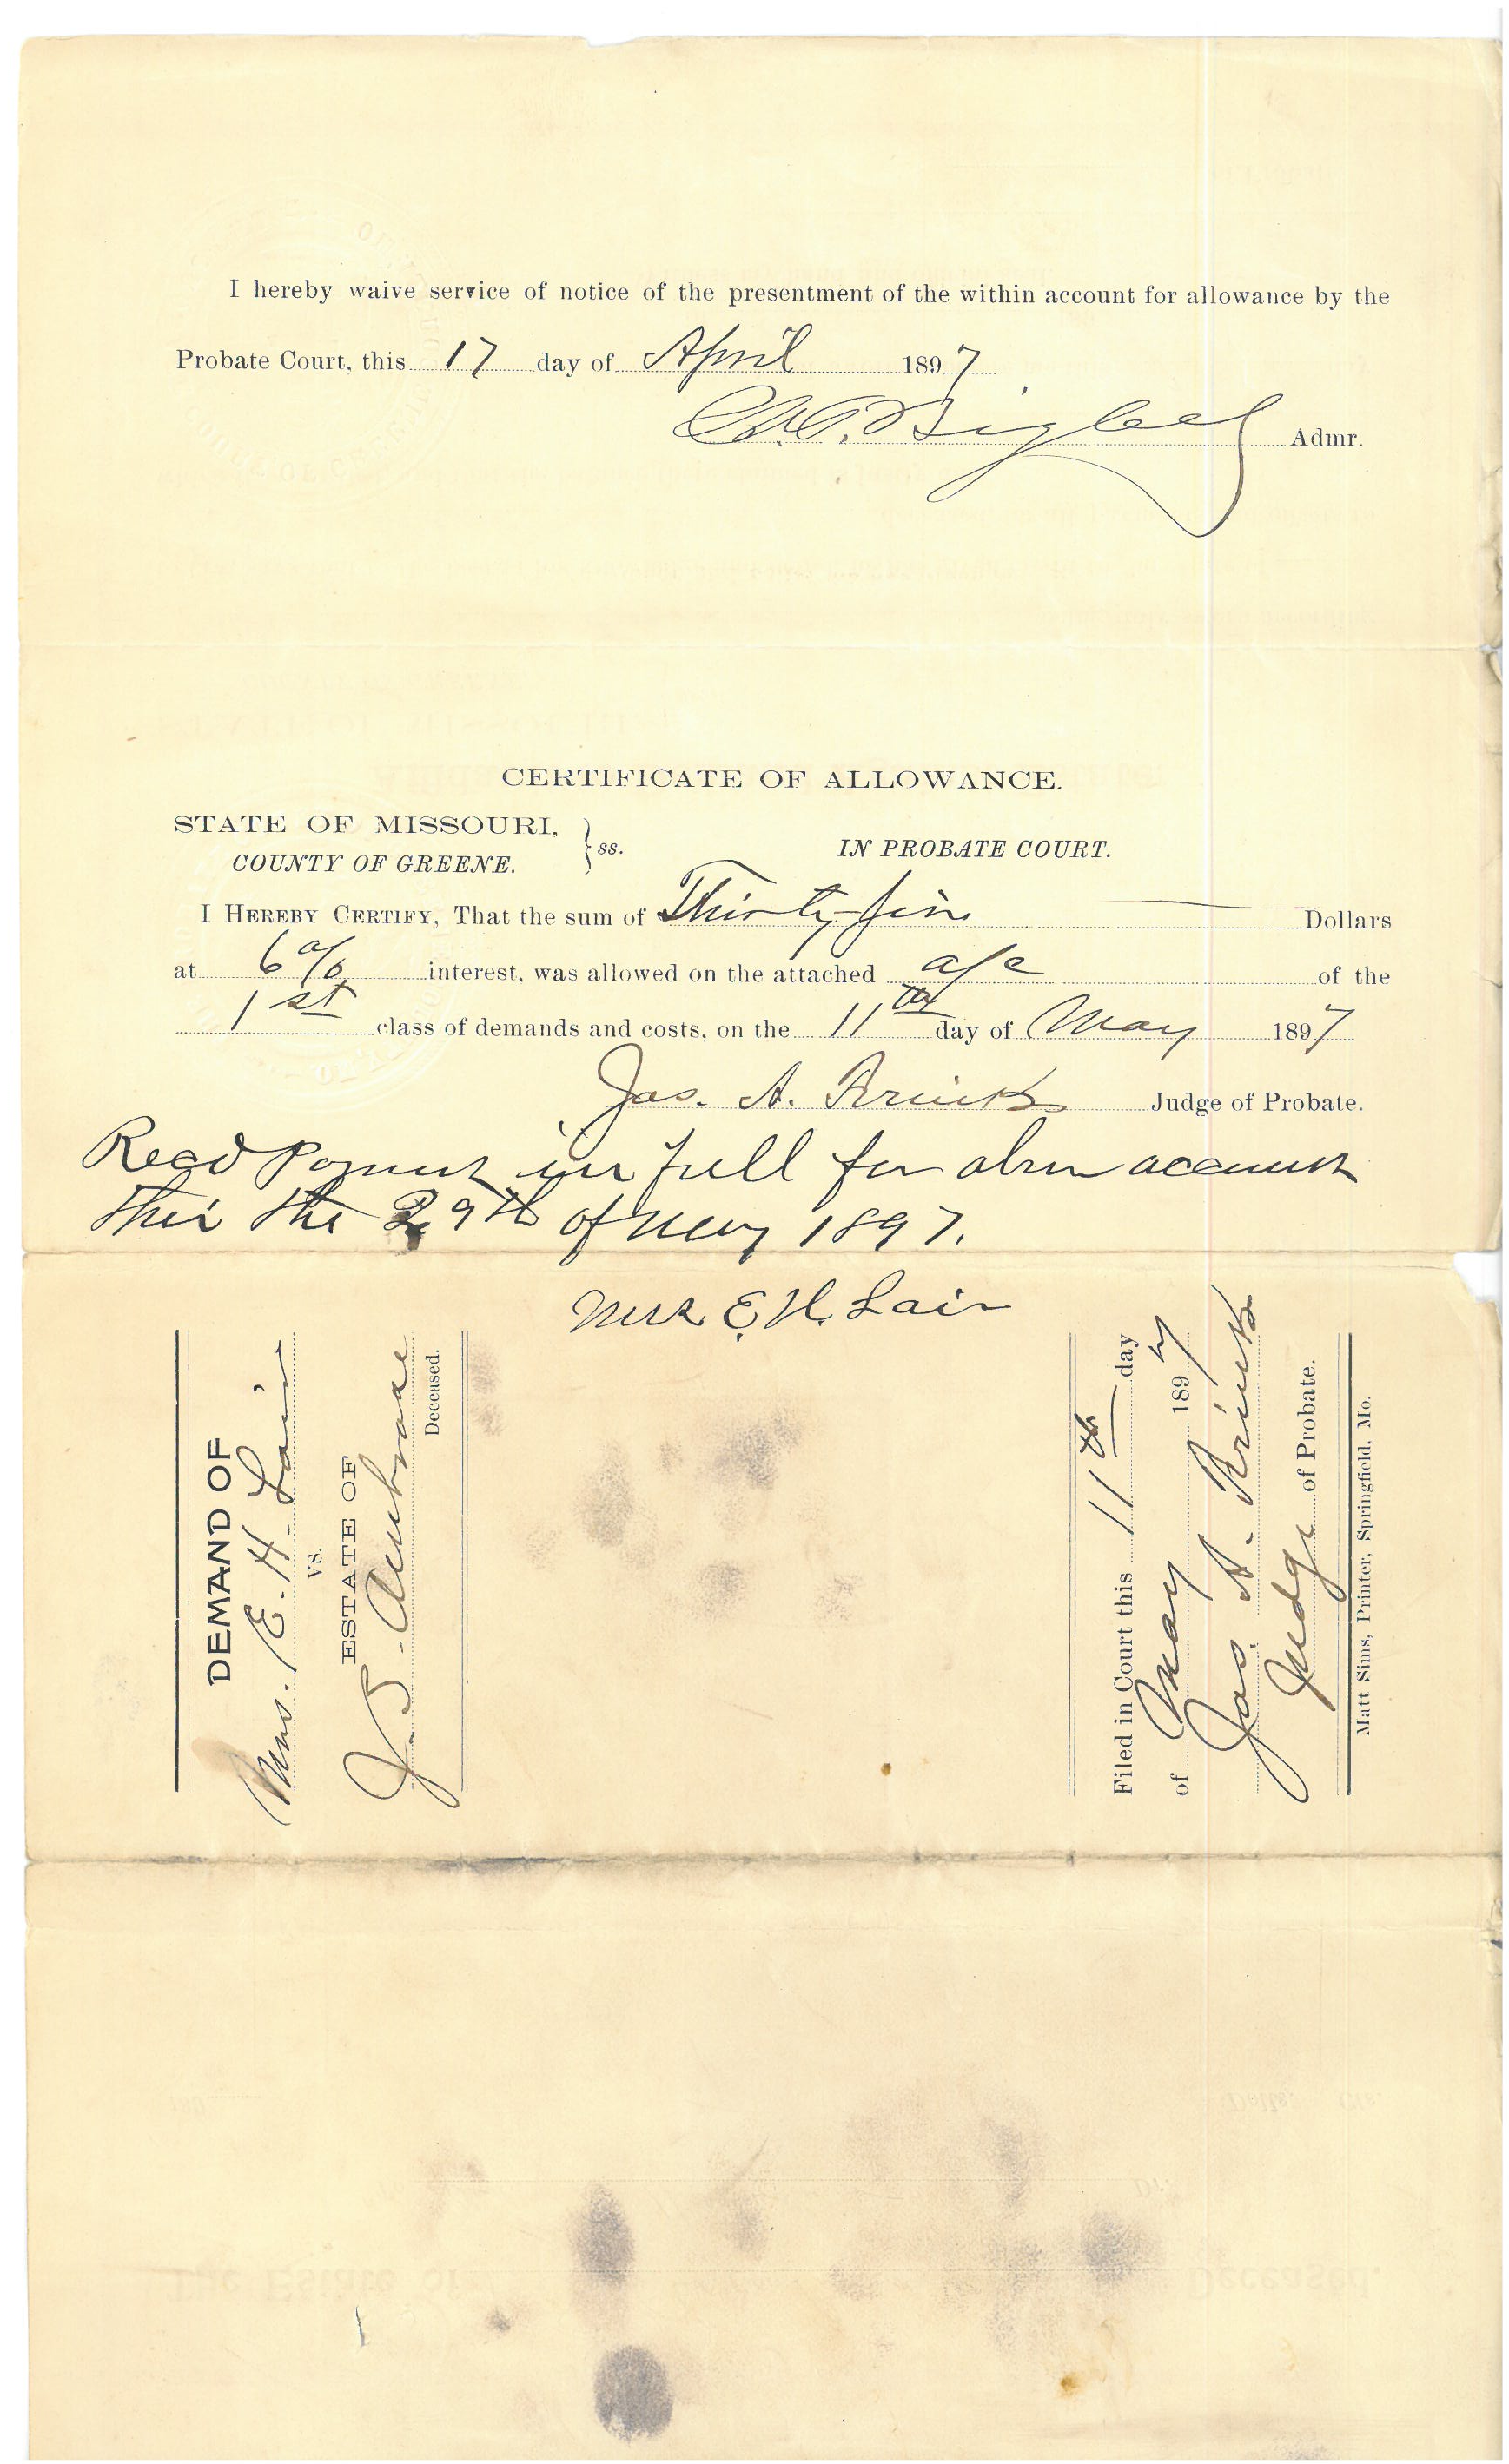 I hereby waive service of notice of the presentment of the within account for allowance by the
Probate Court, this 17 day of April 1897
Admr.
CERTIFICATE OF ALLOWANCE.
STATE OF MISSOURI,
COUNTY OF GREENE.
ss.
IN PROBATE COURT.
I HEREBY CERTIFY, That the sum of Thirty-five Dollars
at 6% interest, was allowed on the attached a/c of the
1st class of demands and costs, on the 11th day of May 1897
Jas. A. Judge of Probate.
Recd in full for account
this the 29th of May 1897.
Mrs E. H. Lair
DEMAND OF
Mrs. E. H. Lair
vs.
ESTATE OF
J. S.
Deceased.
Filed in Court this 11th day
of May 1897
Jas. A.
Judge of Probate.
Matt Sims, Printer, Springfield, Mo.
The Estate of Deceased.